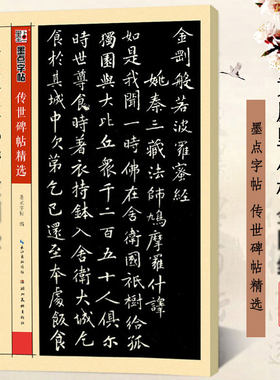 墨点字帖
传世碑帖精选
墨点字帖 编
湖北美术出版社
金剛般若波羅蜜經
姚秦三藏法師鳩摩羅什譯
如是我聞一時佛在舍衛國祇樹給孤
獨園與大比丘眾千二百五十人俱尔
時世尊食時著衣持鉢入舍衛大城乞
食於其城中次第乞已還至本處飯食
墨点字帖 传世碑帖精选